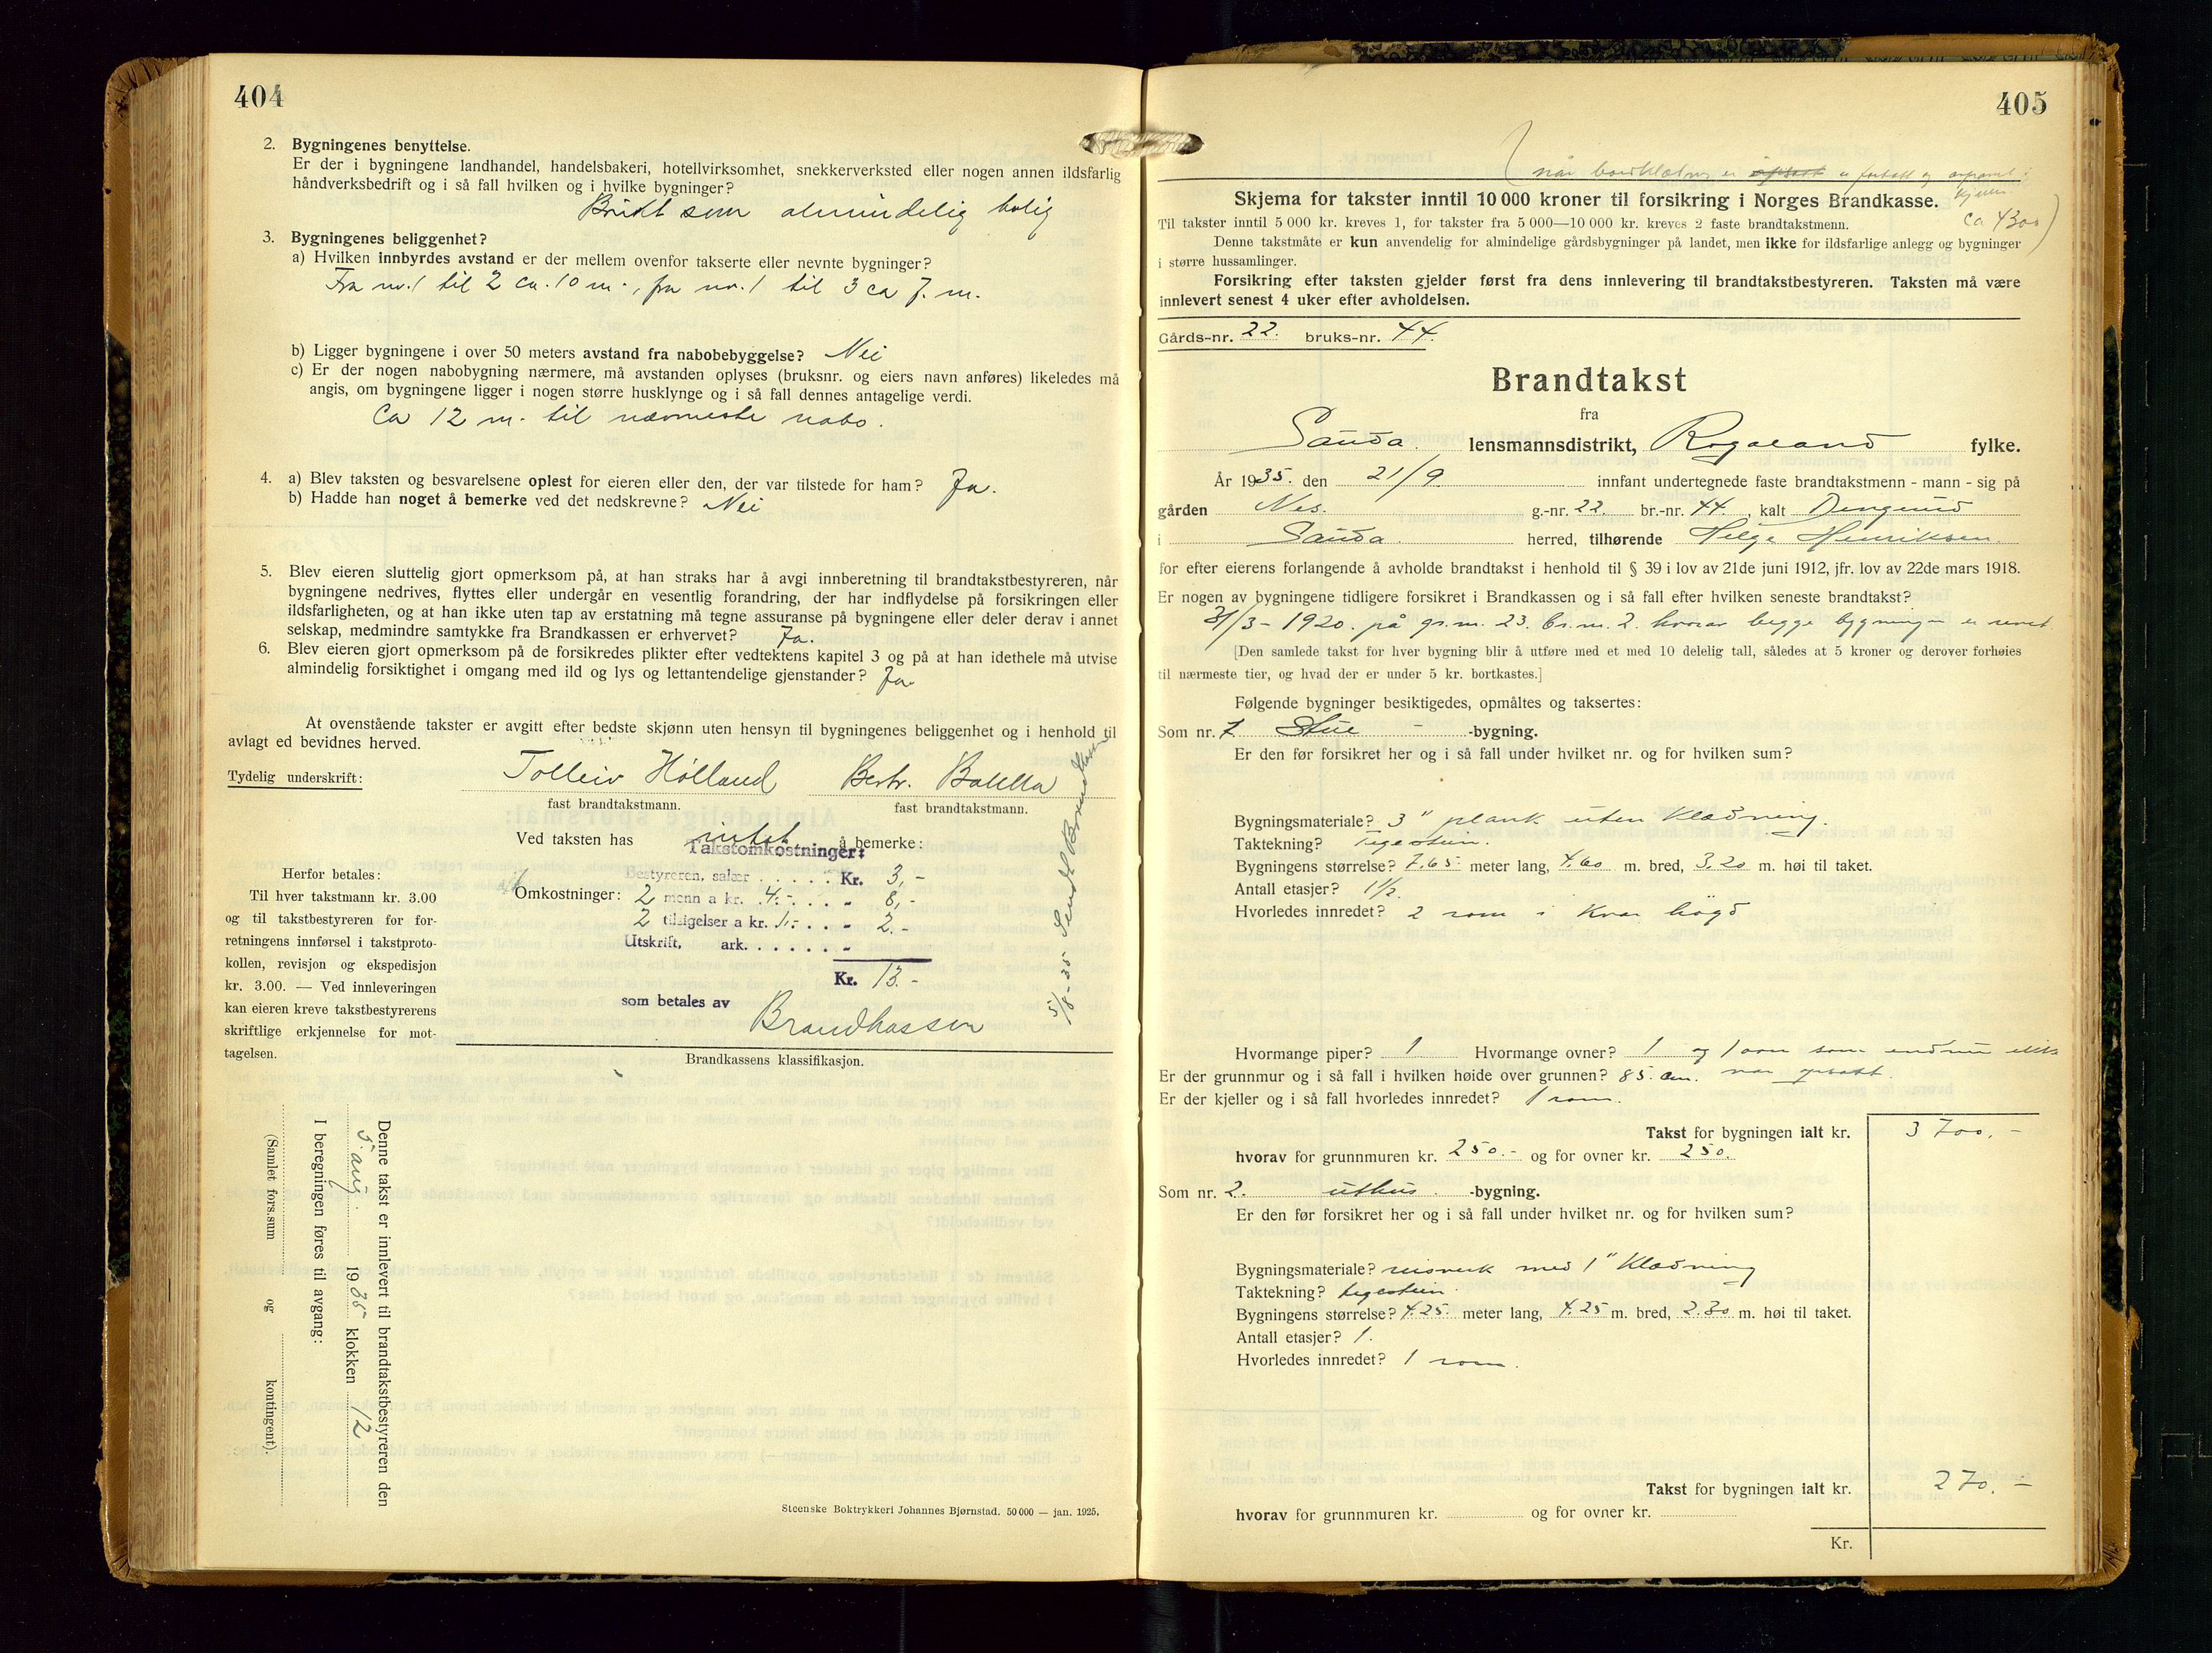 404
2. Bygningenes benyttelse.
Er der i bygningene landhandel, handelsbakeri, hotellvirksomhet, snekkerverksted eller nogen annen ildsfarlig
håndverksbedrift og i så fall hvilken og i hvilke bygninger?
Brukt som almindelig bolig
3. Bygningenes beliggenhet?
a) Hvilken innbyrdes avstand er der mellem ovenfor takserte eller nevnte bygninger?
Fra nr. 1 til 2 ca. 10 m., fra nr. 1 til 3 ca 7. m.
b) Ligger bygningene i over 50 meters avstand fra nabobebyggelse? Nei
c) Er der nogen nabobygning nærmere, må avstanden oplyses (bruksnr. og eiers navn anføres) likeledes må
angis, om bygningene ligger i nogen større husklynge og i så fall dennes antagelige verdi.
Ca 12 m. til nærmeste nabo.
4. a) Blev taksten og besvarelsene oplest for eieren eller den, der var tilstede for ham? Ja.
b) Hadde han noget å bemerke ved det nedskrevne? Nei
5. Blev eieren sluttelig gjort opmerksom på, at han straks har å avgi innberetning til brandtakstbestyreren, når
bygningene nedrives, flyttes eller undergår en vesentlig forandring, der har indflydelse på forsikringen eller
ildsfarligheten, og at han ikke uten tap av erstatning må tegne assuranse på bygningene eller deler derav i annet
selskap, medmindre samtykke fra Brandkassen er erhvervet? Ja.
6. Blev eieren gjort opmerksom på de forsikredes plikter efter vedtektens kapitel 3 og på at han idethele må utvise
almindelig forsiktighet i omgang med ild og lys og lettantendelige gjenstander? Ja
At ovenstående takster er avgitt efter bedste skjønn uten hensyn til bygningenes beliggenhet og i henhold til
avlagt ed bevidnes herved.
Tydelig underskrift: Tolleiv Hølland Bertr. Bakka
fast brandtakstmann. fast brandtakstmann.
Ved taksten has intet å bemerke:
Takstomkostninger:
Herfor betales:
Til hver takstmann kr. 3.00
og til takstbestyreren for for-
retningens innførsel i takstproto-
kollen, revisjon og ekspedisjon
kr. 3.00. — Ved innleveringen
kan eieren kreve takstbestyrerens
skriftlige erkjennelse for mot-
tagelsen.
Bestyreren, salær . . . . . Kr. 3,-
Omkostninger: 2 menn a kr. 4.- . . „ 8,-
2 tilsigelser a kr. 1.- . . „ 2.-
Utskrift, ark. . . . . . „
Kr. 13.-
som betales av Brandkassen
5/8-35 Sendt Brandkassen
Brandkassens klassifikasjon.
Denne takst er innlevert til brandtakstbestyreren den
5. aug. 1935 klokken 12
I beregningen føres til avgang:
(Samlet fors.sum og kontingent).
Steenske Boktrykkeri Johannes Bjørnstad. 50 000 — jan. 1925.
405
(når bordklædning er
kjeller
ca 4300)
Skjema for takster inntil 10 000 kroner til forsikring i Norges Brandkasse.
Til takster inntil 5 000 kr. kreves 1, for takster fra 5 000—10 000 kr. kreves 2 faste brandtakstmenn.
Denne takstmåte er kun anvendelig for almindelige gårdsbygninger på landet, men ikke for ildsfarlige anlegg og bygninger
i større hussamlinger.
Forsikring efter taksten gjelder først fra dens innlevering til brandtakstbestyreren. Taksten må være
innlevert senest 4 uker efter avholdelsen.
Gårds-nr. 22. bruks-nr. 44.
Brandtakst
fra
Sauda. lensmannsdistrikt, Rogaland fylke.
År 1935. den 21/9. innfant undertegnede faste brandtakstmenn - mann - sig på
gården Nes. g.-nr. 22. br.-nr. 44., kalt
i Sauda. herred, tilhørende Helge Henriksen.
for efter eierens forlangende å avholde brandtakst i henhold til § 39 i lov av 21de juni 1912, jfr. lov av 22de mars 1918.
Er nogen av bygningene tidligere forsikret i Brandkassen og i så fall efter hvilken seneste brandtakst?
31/3-1920. på gr.nr. 23. br.nr. 2. hvorav begge bygninger er revet
[Den samlede takst for hver bygning blir å utføre med et med 10 delelig tall, således at 5 kroner og derover forhøies
til nærmeste tier, og hvad der er under 5 kr. bortkastes.]
Følgende bygninger besiktigedes, opmåltes og taksertes:
Som nr. 1. Stue -bygning.
Er den før forsikret her og i så fall under hvilket nr. og for hvilken sum?
Bygningsmateriale? 3" plank uten Klædning.
Taktekning? Teglstein.
Bygningens størrelse? 7,65 meter lang, 4,60 m. bred, 3,20 m. høi til taket.
Antall etasjer? 1½.
Hvorledes innredet? 2 rom i kvar høgd
Hvormange piper? 1 Hvormange ovner? 1 og 1 ovn som endnu ikke
Er der grunnmur og i så fall i hvilken høide over grunnen? 85. cm. var opsatt.
Er der kjeller og i så fall hvorledes innredet? 1 rom.
Takst for bygningen ialt kr. 3 700.-
hvorav for grunnmuren kr. 250.- og for ovner kr. 250.
Som nr. 2. uthus. -bygning.
Er den før forsikret her og i så fall under hvilket nr. og for hvilken sum?
Bygningsmateriale? reisverk med 1" Klædning
Taktekning? teglstein.
Bygningens størrelse? 4.25. meter lang, 4.25 m. bred, 2.30 m. høi til taket.
Antall etasjer? 1.
Hvorledes innredet? 1 rom.
Takst for bygningen ialt kr. 270.-
hvorav for grunnmuren kr. og for ovner kr.
Kr.